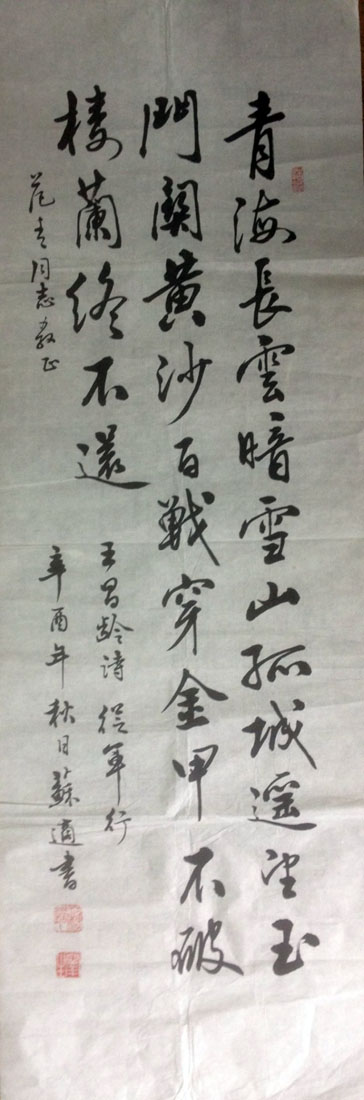 青海長雲暗雪山孤城遥望玉
門關黄沙百戰穿金甲不破
樓蘭終不還
王昌齡詩 從軍行
同志教正
辛酉年秋日蘇適書